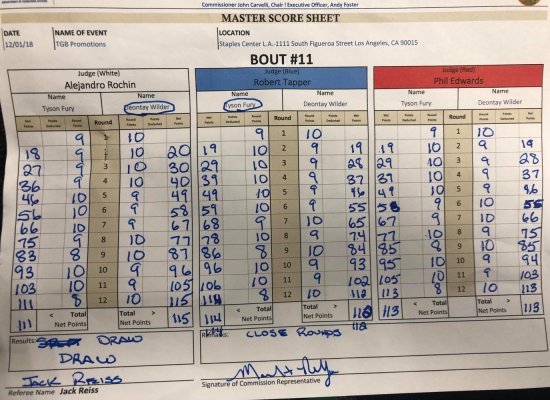 Commissioner John Carvelli, Chair | Executive Officer, Andy Foster
MASTER SCORE SHEET
DATE NAME OF EVENT LOCATION
12/01/18 TGB Promotions Staples Center L.A.-1111 South Figueroa Street Los Angeles, CA 90015
BOUT #11
Judge (White) Judge (Blue) Judge (Red)
Alejandro Rochin Robert Tapper Phil Edwards
Name Name Name Name Name Name
Tyson Fury Deontay Wilder Tyson Fury Deontay Wilder Tyson Fury Deontay Wilder
Net Points Points Deducted Round Points Round Round Points Points Deducted Net Points Net Points Points Deducted Round Points Round Round Points Points Deducted Net Points Net Points Points Deducted Round Points Round Round Points Points Deducted Net Points
9 1 10 9 1 10 9 1 10
18 9 2 10 20 19 10 2 9 19 19 10 2 9 19
27 9 3 10 30 29 10 3 9 28 29 10 3 9 28
36 9 4 10 40 39 10 4 9 37 39 10 4 9 37
46 10 5 9 49 49 10 5 9 46 49 10 5 9 46
56 10 6 9 58 59 10 6 9 55 58 9 6 10
66 10 7 9 67 68 9 7 10 65 67 9 7 10 66
75 9 8 10 77 78 10 8 9 74 77 10 8 9 75
83 8 9 10 87 86 8 9 10 84 85 8 9 10 85
93 10 10 9 96 96 10 10 9 93 95 10 10 9 94
103 10 11 9 105 106 10 11 9 102 105 10 11 9 103
111 8 12 10 115 114 8 12 10 112 113 8 12 10 113
111 < Total > Net Points 115 114 < Total > Net Points 112 113 < Total > Net Points 113
Results: DRAW Remarks: CLOSE ROUNDS
DRAW
JACK REISS
Referee Name Jack Reiss Signature of Commission Representative